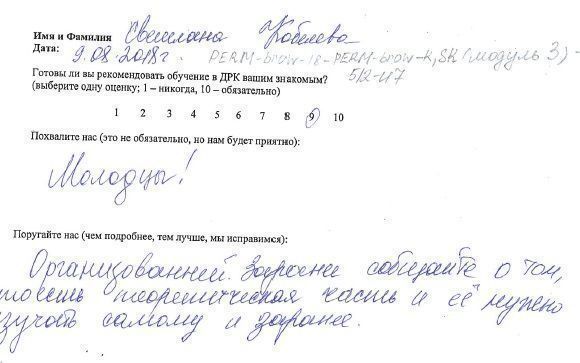 Имя и Фамилия Светлана Кобелева
Дата: 9.08.2018г. PERM-brow-18-PERM-brow-R,SR (модуль 3) -
Готовы ли вы рекомендовать обучение в ДРК вашим знакомым? 512-И7
(выберите одну оценку; 1 – никогда, 10 – обязательно)
1 2 3 4 5 6 7 8 9 10
Похвалите нас (это не обязательно, но нам будет приятно):
Молодцы!
Поругайте нас (чем подробнее, тем лучше, мы исправимся):
Организованней. Заранее сообщайте о том,
теоретическая часть и её нужно
самому и заранее.